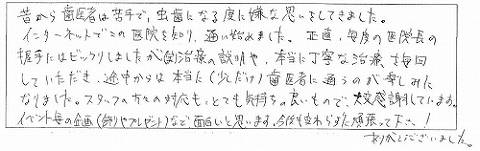 昔から歯医者は苦手で、虫歯になる度に嫌な思いをしてきました。
インターネットでこの医院を知り、通い始めました。正直、毎度の医院長の
握手にはビックリしましたが(笑)治療の説明や、本当に丁寧な治療を毎回
していただき、途中からは本当に(少しだけ)歯医者に通うのが楽しみに
なりました。スタッフの方々の対応も、とても気持ちの良いもので、大変感謝しています。
イベント毎の企画(飾りやプレゼント)なども面白いと思います。今後も変わらずに頑張って下さい!
ありがとうございました。